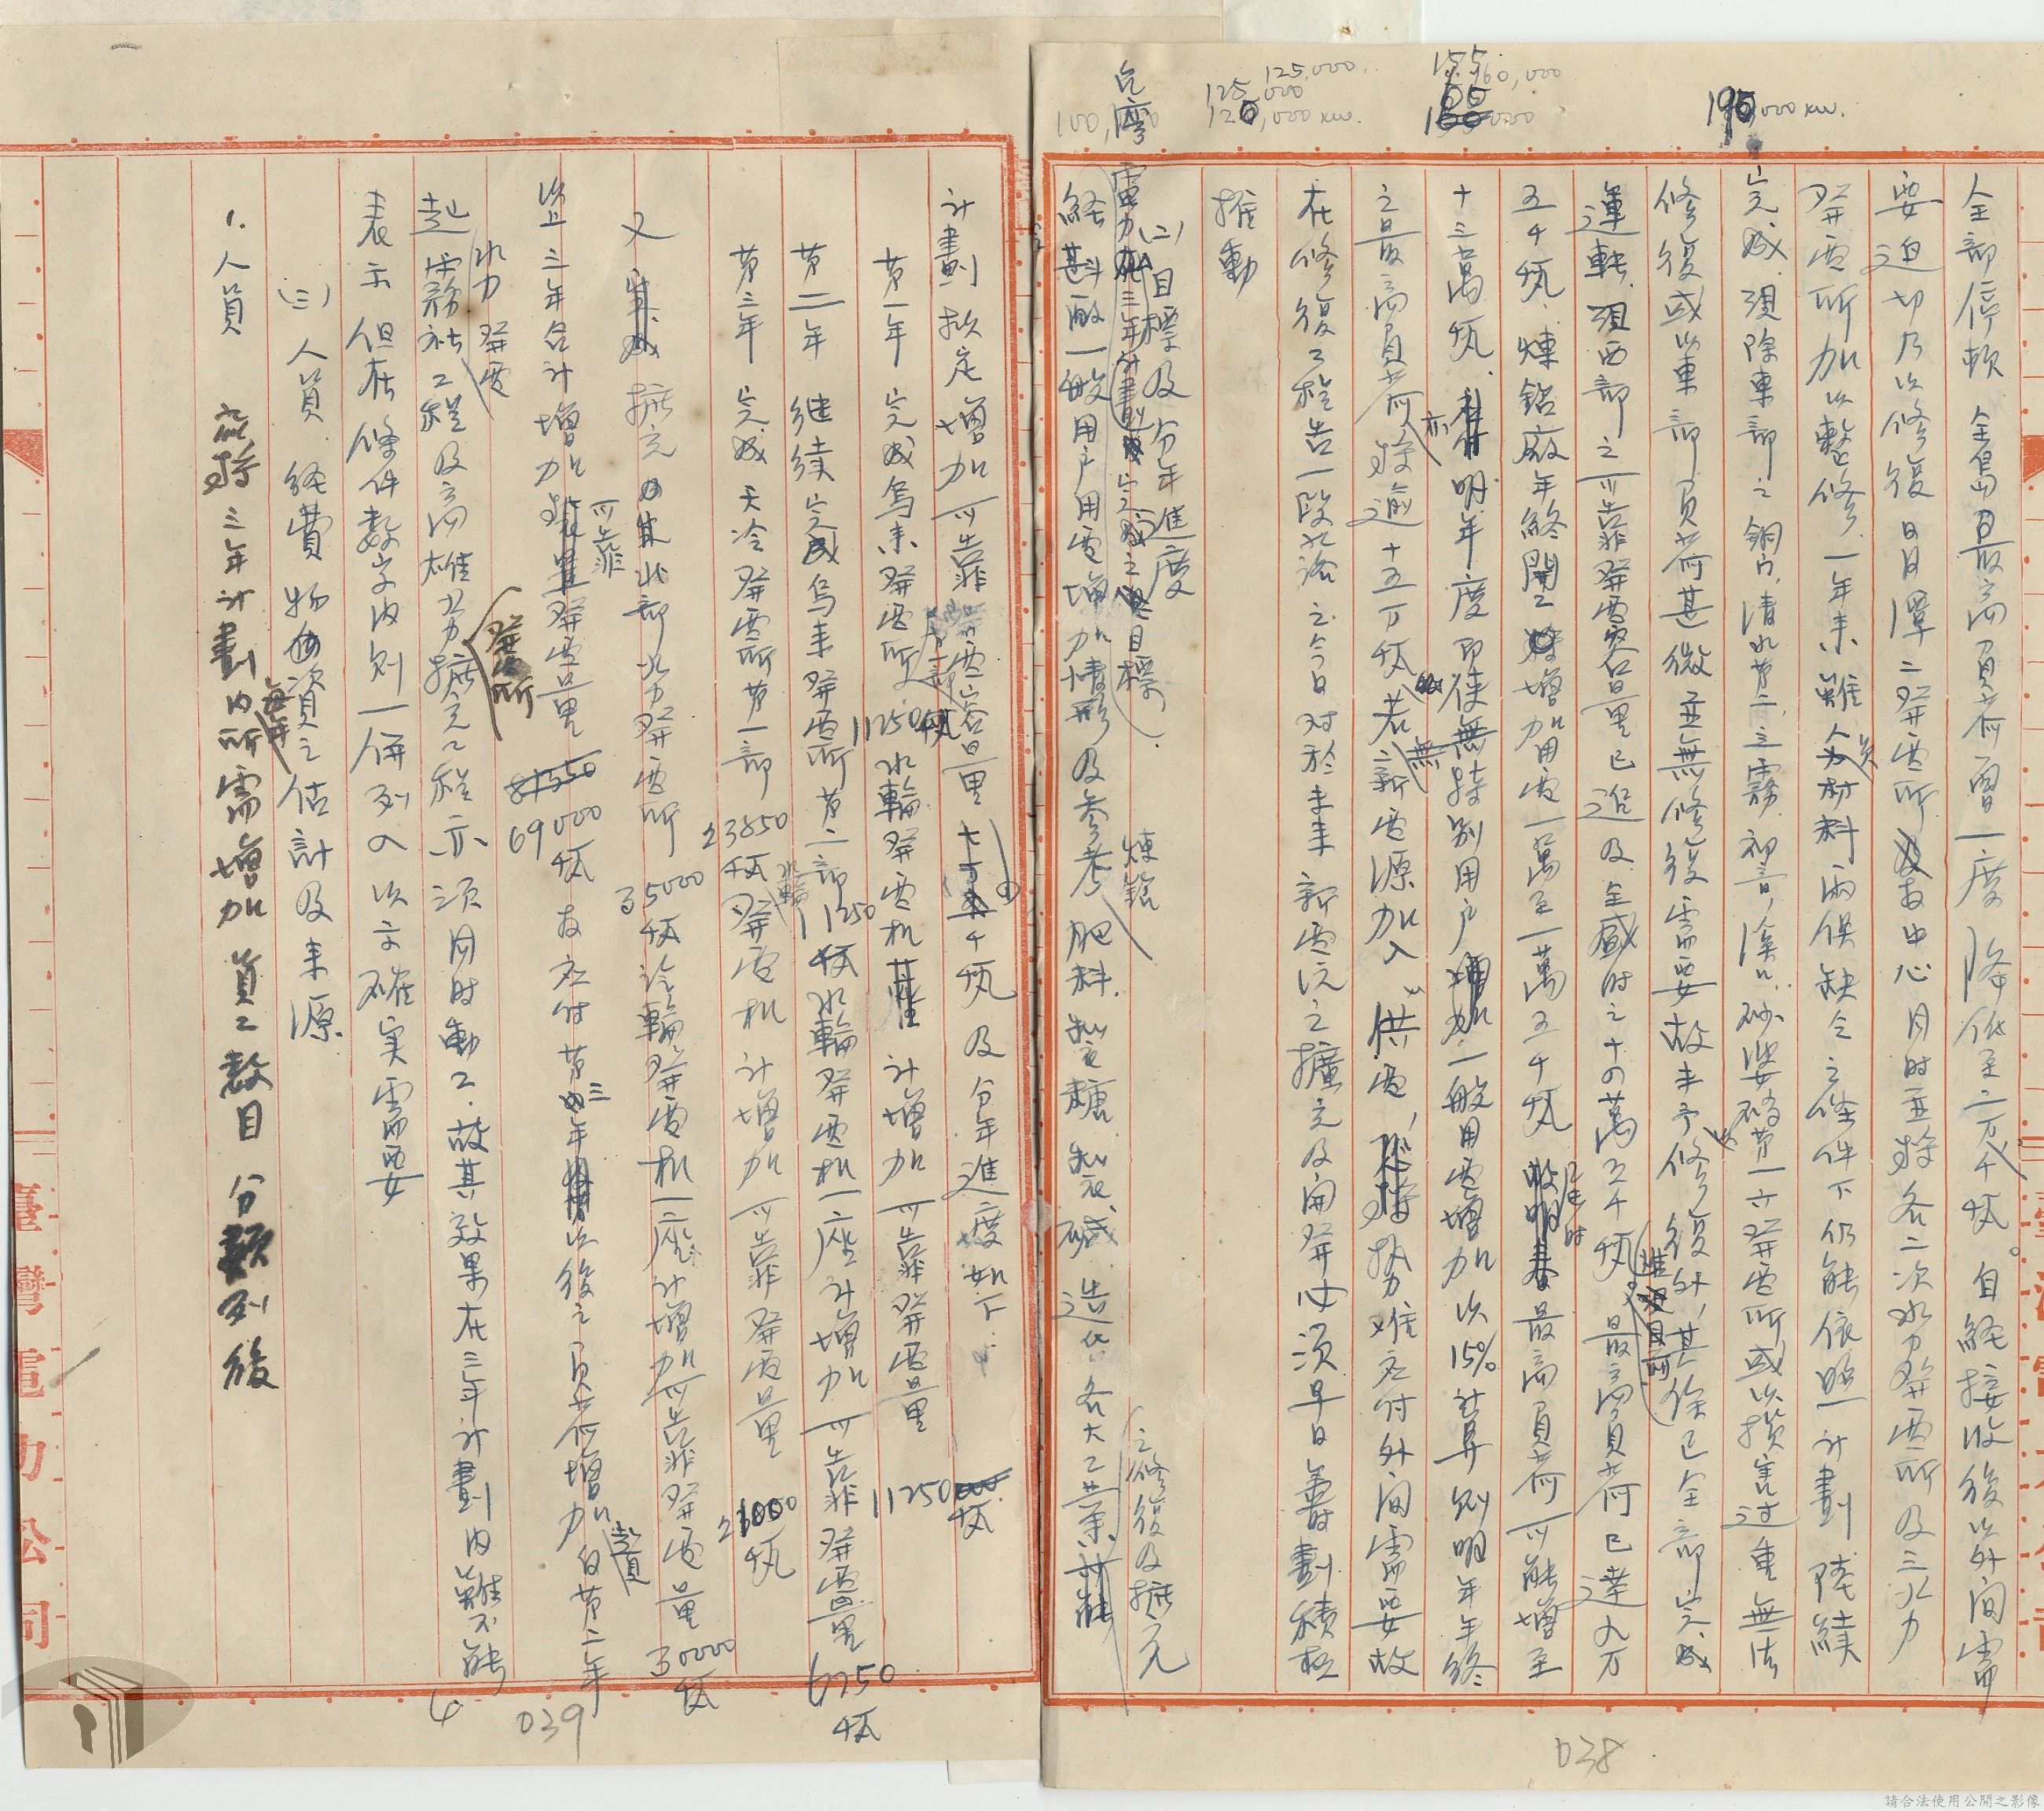 全部停頓 全島最高負荷曾一度降低至二万千瓩。自経接收後以外間需
要迫切乃以修復日月潭二發電所為中心同时並將各二次水力發電所及三火力
發電所加以整修一年来雖人員材料兩俱缺乏之條件下仍能依照計劃陸續
完成,現除東部之銅门,清水第二,立霧,初音,溪口,砂婆礑第一六發電所或以損害过重無法
修復或以東部負荷甚微並無修復需要故未予修復外,其餘已全部完成
運転.現西部之可靠發電容量已进及全盛时之十四萬五千瓩,最高負荷已達九万
五千瓩.煉鋁廠年終開工增加用電一萬至一萬五千瓩 最高負荷可能增至
十三萬瓩.明年度即使無特別用户一般用電增加以15%計算則明年年終
之最高負荷亦將逾十五万瓩 若無新電源加入供電,勢难应付外间需要故
在修復工程告一段落之今日对於未来新電源之擴充及開發必須早日籌劃積極
推動
(二)目標及分年進度
台灣電力三年計劃完成之目標
経甚料酌一般用户用電增加情形及参考肥料.製糖 製碱 造纸各大工業
煉鋁
之修復及擴充
計劃拟定增加可靠電容量 千瓩及分年進度如下:
第一年 完成烏来發電所 11250瓩水輪發電机 計增加可靠發電量 11250瓩
第二年 继续完成烏来發電所第二部11250瓩水輪發電机一座計增加可靠發電量6750瓩
第三年 完成天冷發電所第一部 23850瓩水輪發電机 計增加可靠發電量 21000瓩
又 擴充北部火力發電所 35000瓩汽輪發電机一座計增加可靠發電量30000瓩
以上三年合計增加可靠發電量 69000瓩 为应付第三年以後之負荷增加自第二年
起霧社水力發電工程及高雄火力發電所擴充工程亦須同时動工.故其效果在三年計劃内雖不能
表示 但在條件数字内則一併列入以示確实需要
(三)人員 経費 物資每年之估計及来源
1.人員 茲將三年計劃内所需增加員工数目分類列後
100,000
125,000
125,000
120,000 kw.
155
160,000
190,000 kw.
038
039
4
臺灣電力公司
請合法使用公開之影像